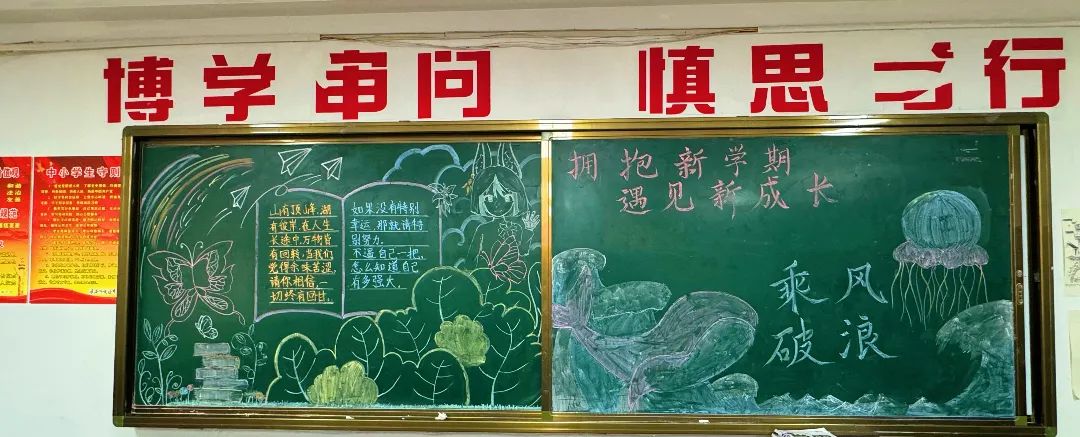 博学审问 慎思笃行
中小学生守则
山有顶峰,湖
有彼岸,在人生
长途中,万物皆
有回转,当我们
觉得余味苦涩,
请你相信,一
切终有回甘。
如果没有特别
幸运,那就请特
别努力.
不逼自己一把,
怎么知道自己
有多强大。
拥抱新学期
遇见新成长
乘风
破浪